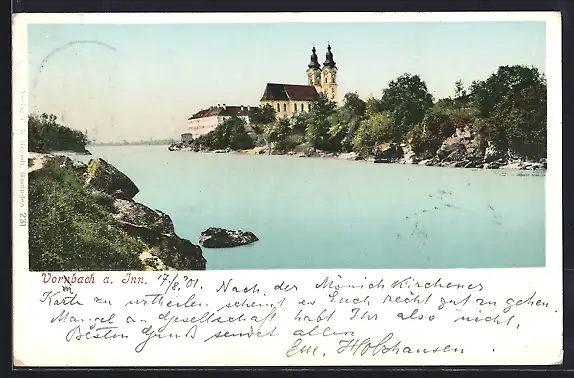 Verlag E. E. Brandt, Gmunden 231
Vornbach a. Inn. 17/8.'01. Nach der Mönichkirchener
Karte zu urtheilen scheint es Euch recht gut zu gehen.
Mangel an Gesellschaft habt Ihr also nicht,
Besten Gruß sendet allen
Em. Holzhausen.